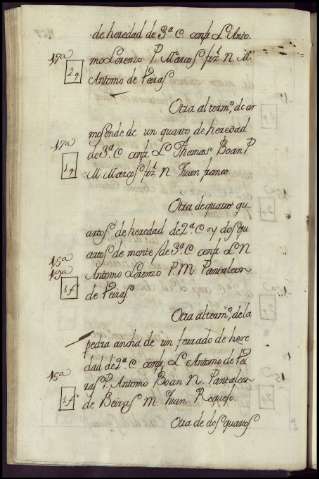 de heredad de 3ª C confⁿ L Anto
15ª
mo Lorenzo P. Marcos N M.
2q
Antonio de Peiras
Otra al term.º de or
17ª
de de un quarto de heredad
de 3ª C confⁿ L Thomas Boan P
1q
M Marcos N Juan
Otra de quatro qu
artos de heredad de 2ª C y dos qu
artos de monte de 3ª C confⁿ L N
15ª
13ª
Antonio Lorenzo P. M Pantaleon
1f
de Peiras
Otra al term.º de la
pedra ancha de un ferrado de here
dad de 2ª C confⁿ L Antonio de Pei
15ª
ras P. Antonio Boan N. Pantaleon
1f
de Beiras M Juan Requejo
Otra de dos quartos